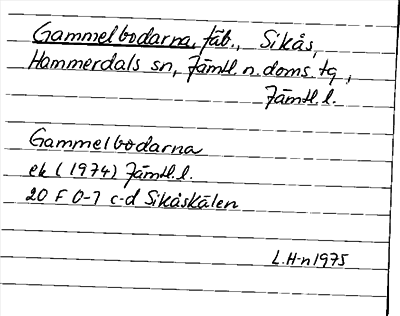 Gammelbodarna, fäb., Sikås,
Hammerdals sn, Jämtl. n. doms. tg,
Jämtl. l.
Gammelbodarna
ek (1974) Jämtl. l.
20 F 0-1 c-d Sikåskälen
L. H-n 1975